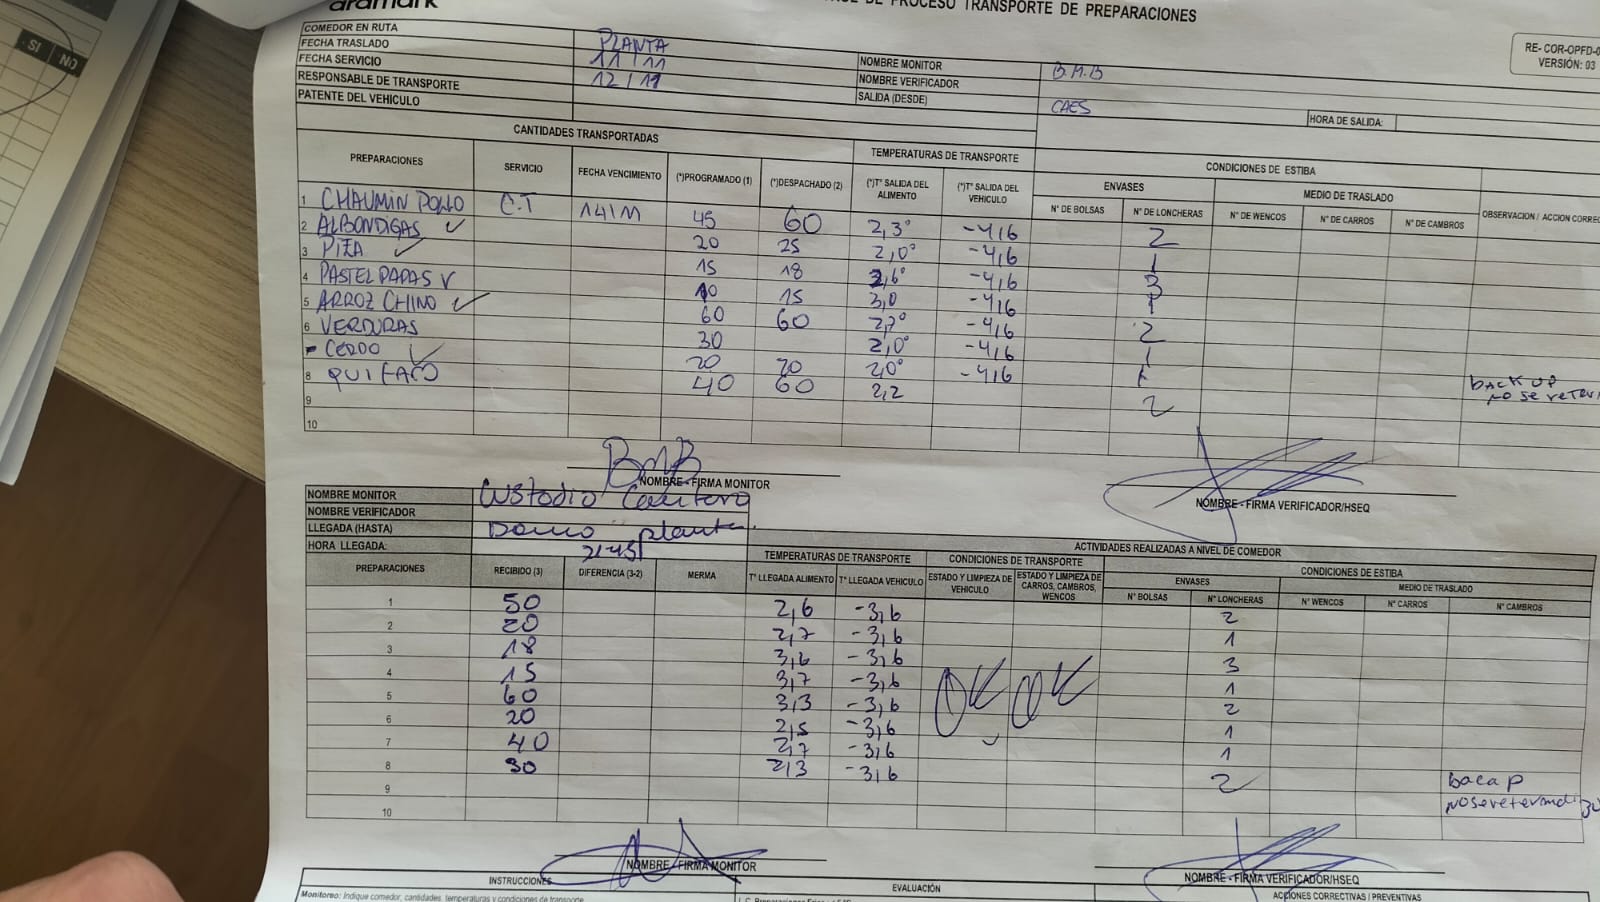 SI NO
aramark
DE PROCESO TRANSPORTE DE PREPARACIONES
RE- COR-OPFD-0
VERSIÓN: 03
COMEDOR EN RUTA PLANTA
FECHA TRASLADO 11/11 NOMBRE MONITOR B.M.B
FECHA SERVICIO 12/11 NOMBRE VERIFICADOR
RESPONSABLE DE TRANSPORTE SALIDA (DESDE) CAES HORA DE SALIDA:
PATENTE DEL VEHICULO
CANTIDADES TRANSPORTADAS TEMPERATURAS DE TRANSPORTE CONDICIONES DE ESTIBA
ENVASES MEDIO DE TRASLADO
PREPARACIONES SERVICIO FECHA VENCIMIENTO (*)PROGRAMADO (1) (*)DESPACHADO (2) (*)T° SALIDA DEL ALIMENTO (*)T° SALIDA DEL VEHICULO N° DE BOLSAS N° DE LONCHERAS N° DE WENCOS N° DE CARROS N° DE CAMBROS OBSERVACION / ACCION CORREC
1 CHAUMIN POLLO C.T 14/11 45 60 2,3° -4,6 2
2 ALBONDIGAS ✓ 20 25 2,0° -4,6 1
3 PIZA ✓ 15 18 3,6° -4,6 3
4 PASTEL PAPAS V 10 15 3,0 -4,6 1
5 ARROZ CHINO ✓ 60 60 2,7° -4,6 2
6 VERDURAS 30 2,0° -4,6 1
- CERDO ✓ 20 20 2,0° -4,6 1
8 40 60 2,2 2 BACK UP
NO SE
9
10
BMB
NOMBRE - FIRMA MONITOR NOMBRE - FIRMA VERIFICADOR/HSEQ
NOMBRE MONITOR Custodio
NOMBRE VERIFICADOR
LLEGADA (HASTA) planta.
HORA LLEGADA: 21:45
ACTIVIDADES REALIZADAS A NIVEL DE COMEDOR
TEMPERATURAS DE TRANSPORTE CONDICIONES DE TRANSPORTE CONDICIONES DE ESTIBA
ENVASES MEDIO DE TRASLADO
PREPARACIONES RECIBIDO (3) DIFERENCIA (3-2) MERMA T° LLEGADA ALIMENTO T° LLEGADA VEHICULO ESTADO Y LIMPIEZA DE VEHICULO ESTADO Y LIMPIEZA DE CARROS, CAMBROS, WENCOS N° BOLSAS N° LONCHERAS N° WENCOS N° CARROS N° CAMBROS
1 50 2,6 -3,6 2
2 20 2,7 -3,6 1
3 18 3,6 -3,6 3
4 15 3,7 -3,6 OK OK 1
5 60 3,3 -3,6 2
6 20 2,5 -3,6 1
7 40 2,7 -3,6 1
8 30 2,3 -3,6 2 bacap
9
10
NOMBRE - FIRMA MONITOR NOMBRE - FIRMA VERIFICADOR/HSEQ
INSTRUCCIONES EVALUACIÓN ACCIONES CORRECTIVAS / PREVENTIVAS
Monitoreo: Indique comedor, cantidades, temperaturas y condiciones de transporte